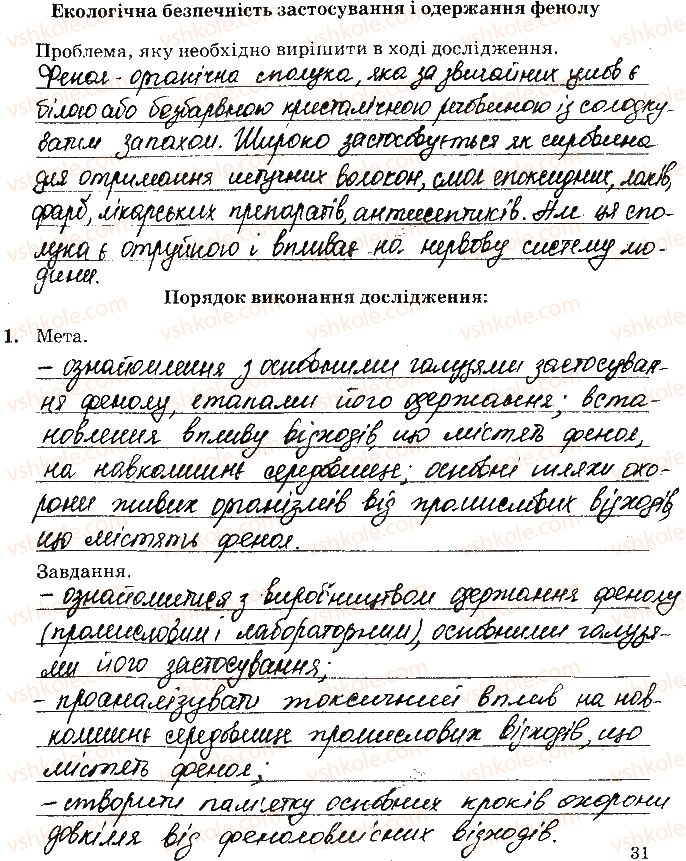 Екологічна безпечність застосування і одержання фенолу
Проблема, яку необхідно вирішити в ході дослідження.
Фенол - органічна сполука, яка за звичайних умов є
білою або безбарвною кристалічною речовиною із солодку-
ватим запахом. Широко застосовується як сировина
для отримання штучних волокон, смол епоксидних, лаків,
фарб, лікарських препаратів, антисептиків. Але ця спо-
лука є отруйною і впливає на нервову систему лю-
дини.
Порядок виконання дослідження:
1. Мета.
- ознайомлення з основними галузями застосуван-
ня фенолу, етапами його одержання; вста-
новлення впливу відходів, що містять фенол,
на навколишнє середовище; основні шляхи охо-
рони живих організмів від промислових відходів,
що містять фенол.
Завдання.
- ознайомитися з виробництвом одержання фенолу
(промисловим і лабораторним), основними галузя-
ми його застосування;
- проаналізувати токсичний вплив на нав-
колишнє середовище промислових відходів, що
містять фенол;
- створити пам'ятку основних кроків охорони
довкілля від феноловмісних відходів.
31